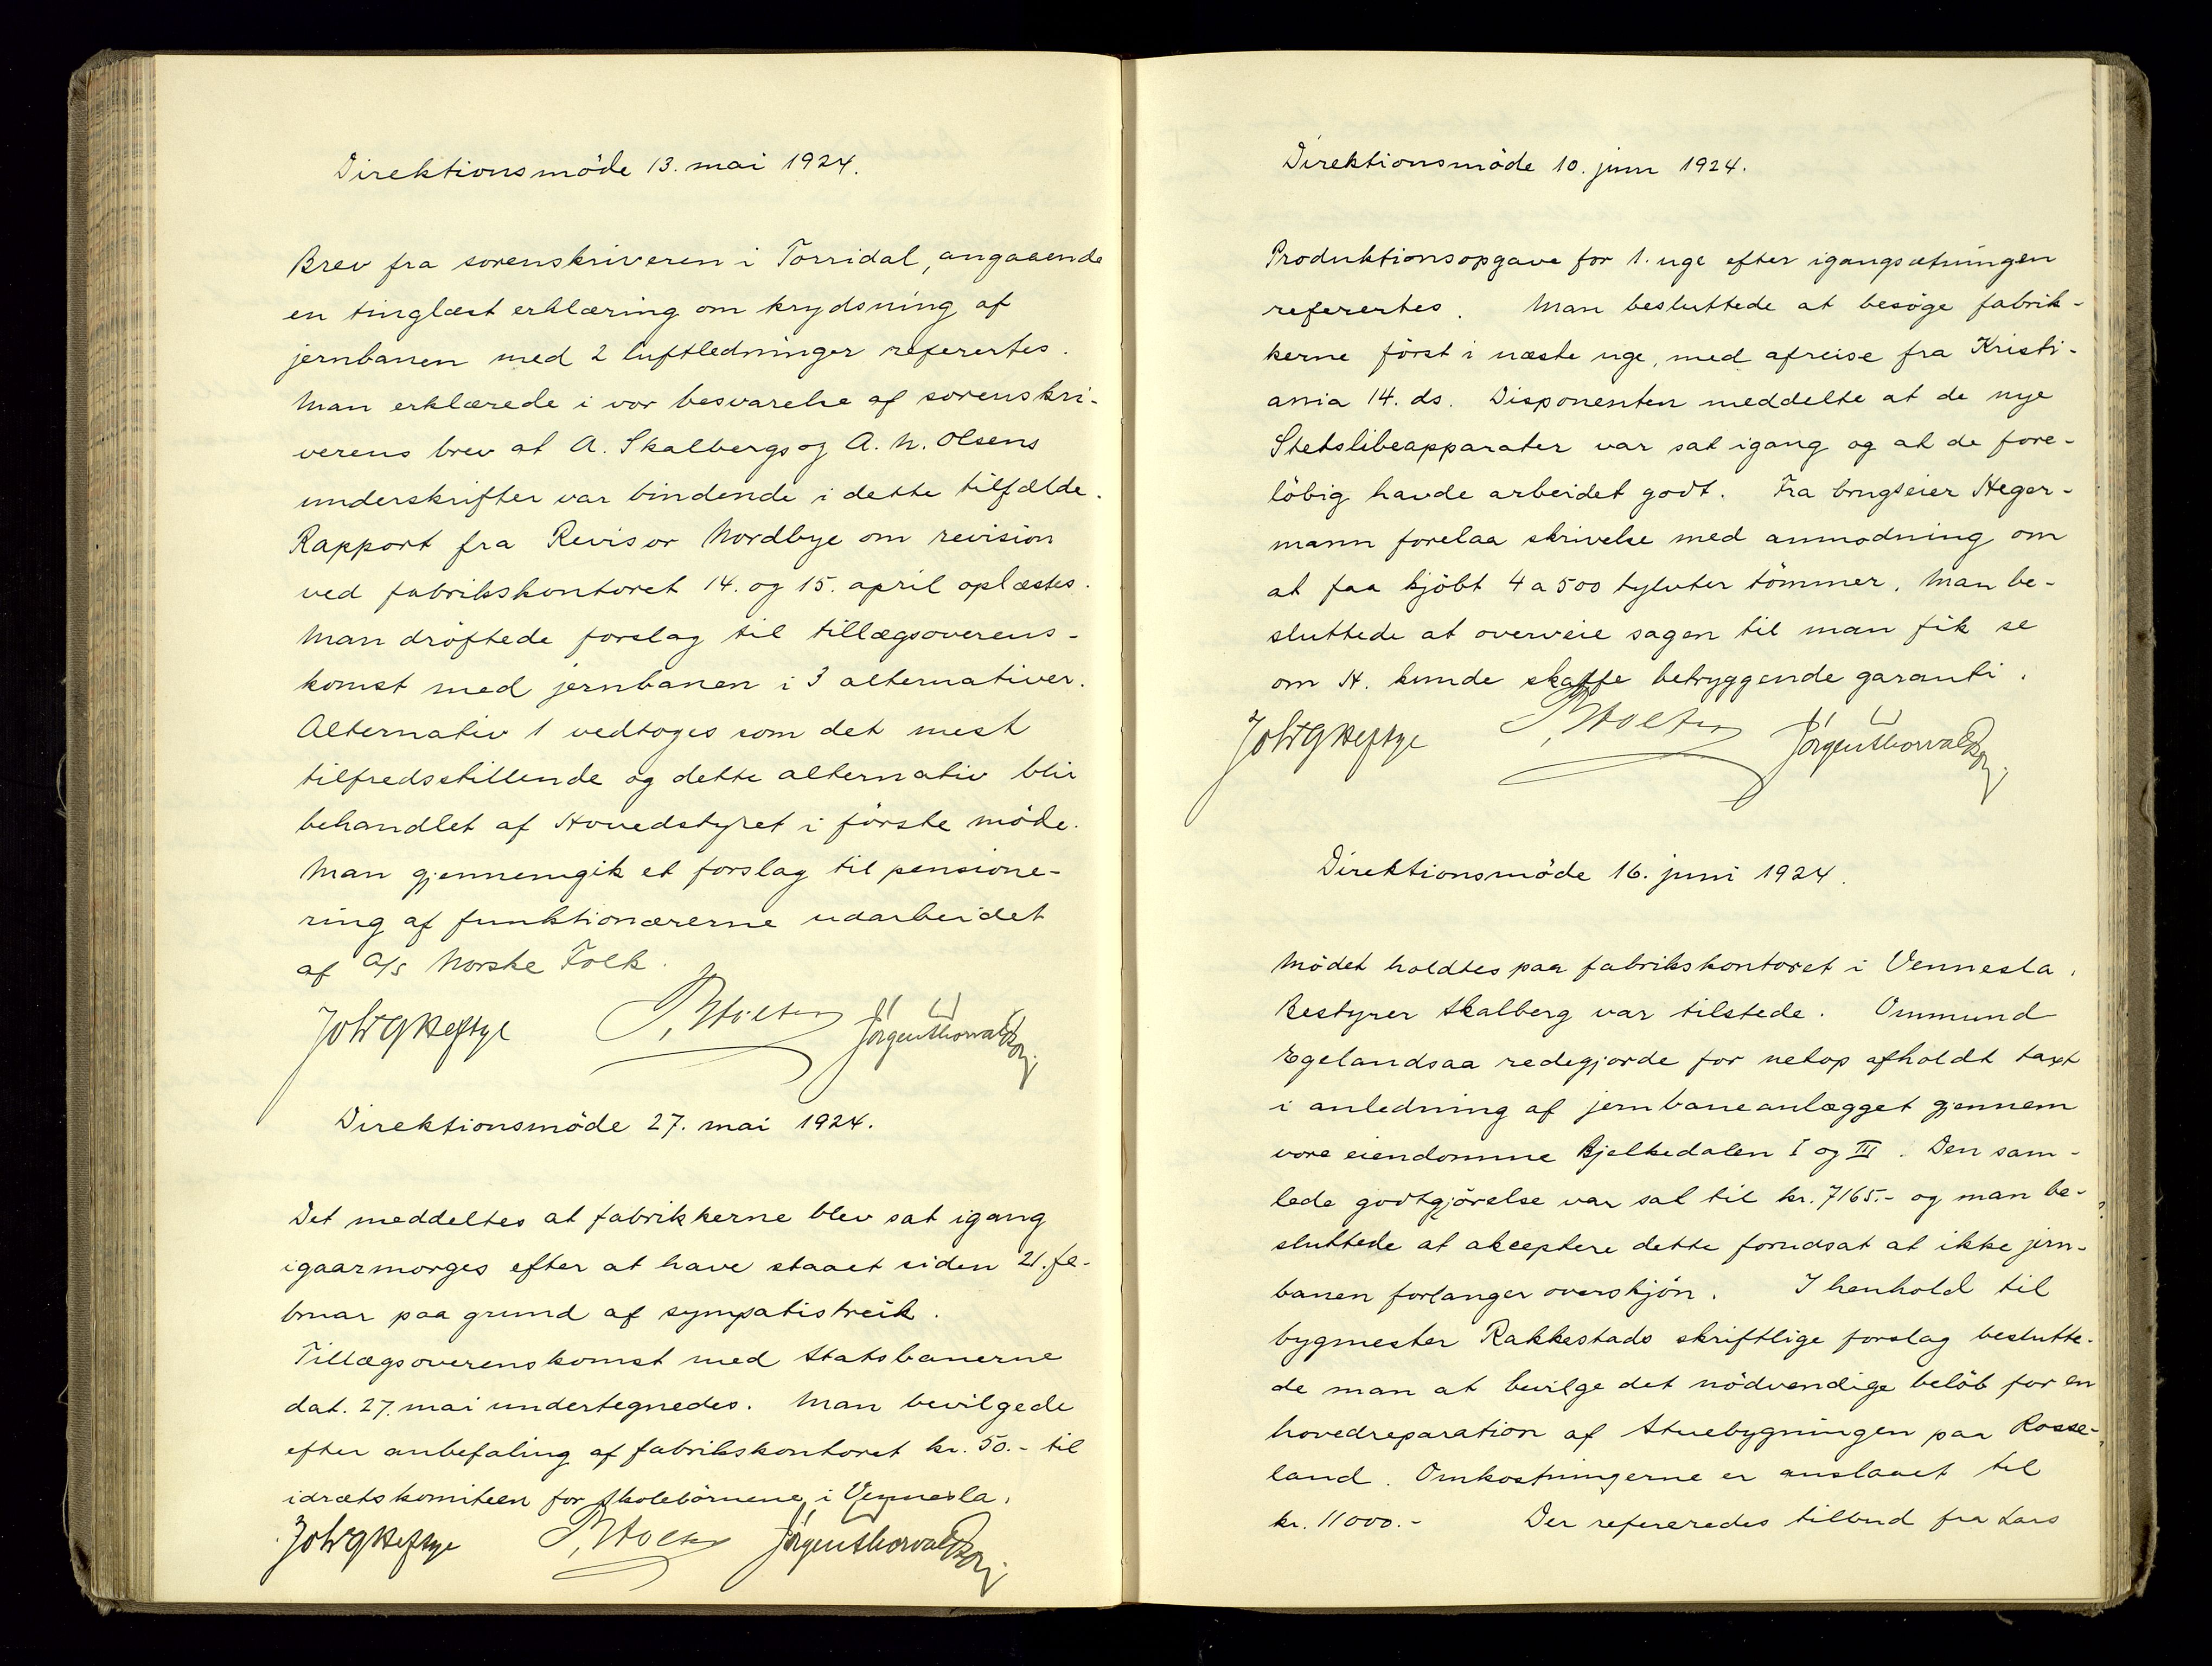 Direktionsmöde 13. mai 1924.
Brev fra sorenskriveren i Torridal, angaaende
en tinglæst erklæring om krydsning af
jernbanen med 2 luftledninger referertes.
Man erklærede i vor besvarelse af sorenskri-
verens brev at A. Skalbergs og A. N. Olsens
underskrifter var bindende i dette tilfælde.
Rapport fra Revisor Nordbye om revision
ved fabrikskontoret 14. og 15. april oplæstes.
Man dröftede forslag til tillægsoverens-
komst med jernbanen i 3 alternativer.
Alternativ 1 vedtoges som det mest
tilfredsstillende og dette alternativ blir
behandlet af Hovedstyret i förste möde.
Man gjennemgik et forslag til pensione-
ring af funktionærerne udarbeidet
af A/S Norske Folk.
Joh G Heftye P. Stolten Jörgen Thorvaldsen
Direktionsmöde 27. mai 1924.
Det meddeltes at fabrikkerne blev sat igang
igaarmorges efter at have staaet siden 21. fe-
bruar paa grund af sympatistreik.
Tillægsoverenskomst med Statsbanerne
dat. 27. mai undertegnedes. Man bevilgede
efter anbefaling af fabrikskontoret kr. 50.- til
idrætskomiteen for skolebörnene i Vennesla.
Joh G Heftye P. Stolten Jörgen Thorvaldsen
Direktionsmöde 10. juni 1924.
Produktionsopgave for 1. uge efter igangsætningen
referertes. Man besluttede at besöge fabrik-
kerne först i næste uge, med afreise fra Kristi-
ania 14. ds. Disponenten meddelte at de nye
Stetslibeapparater var sat igang og at de fore-
löbig havde arbeidet godt. Fra brugseier Heger-
mann forelaa skrivelse med anmodning om
at faa kjöbt 4 a 500 tylvter tömmer. Man be-
sluttede at overveie sagen til man fik se
om H. kunde skaffe betryggende garanti.
Joh G Heftye P. Stolten Jörgen Thorvaldsen
Direktionsmöde 16. juni 1924.
Mödet holdtes paa fabrikskontoret i Vennesla.
Bestyrer Skalberg var tilstede. Ommund
Egelandsaa redegjorde for netop afholdt taxt
i anledning af jernbaneanlægget gjennem
vore eiendomme Bjelkedalen I og III. Den sam-
lede godtgjörelse var sat til kr. 7165.- og man be-
sluttede at akceptere dette forudsat at ikke jern-
banen forlanger overskjön. I henhold til
bygmester Rakkestads skriftlige forslag beslutte-
de man at bevilge det nödvendige belöb for en
hovedreparation af Stuebygningen paa Rosse-
land. Omkostningerne er anslaaet til
kr. 11000.- Der refereredes tilbud fra Lars